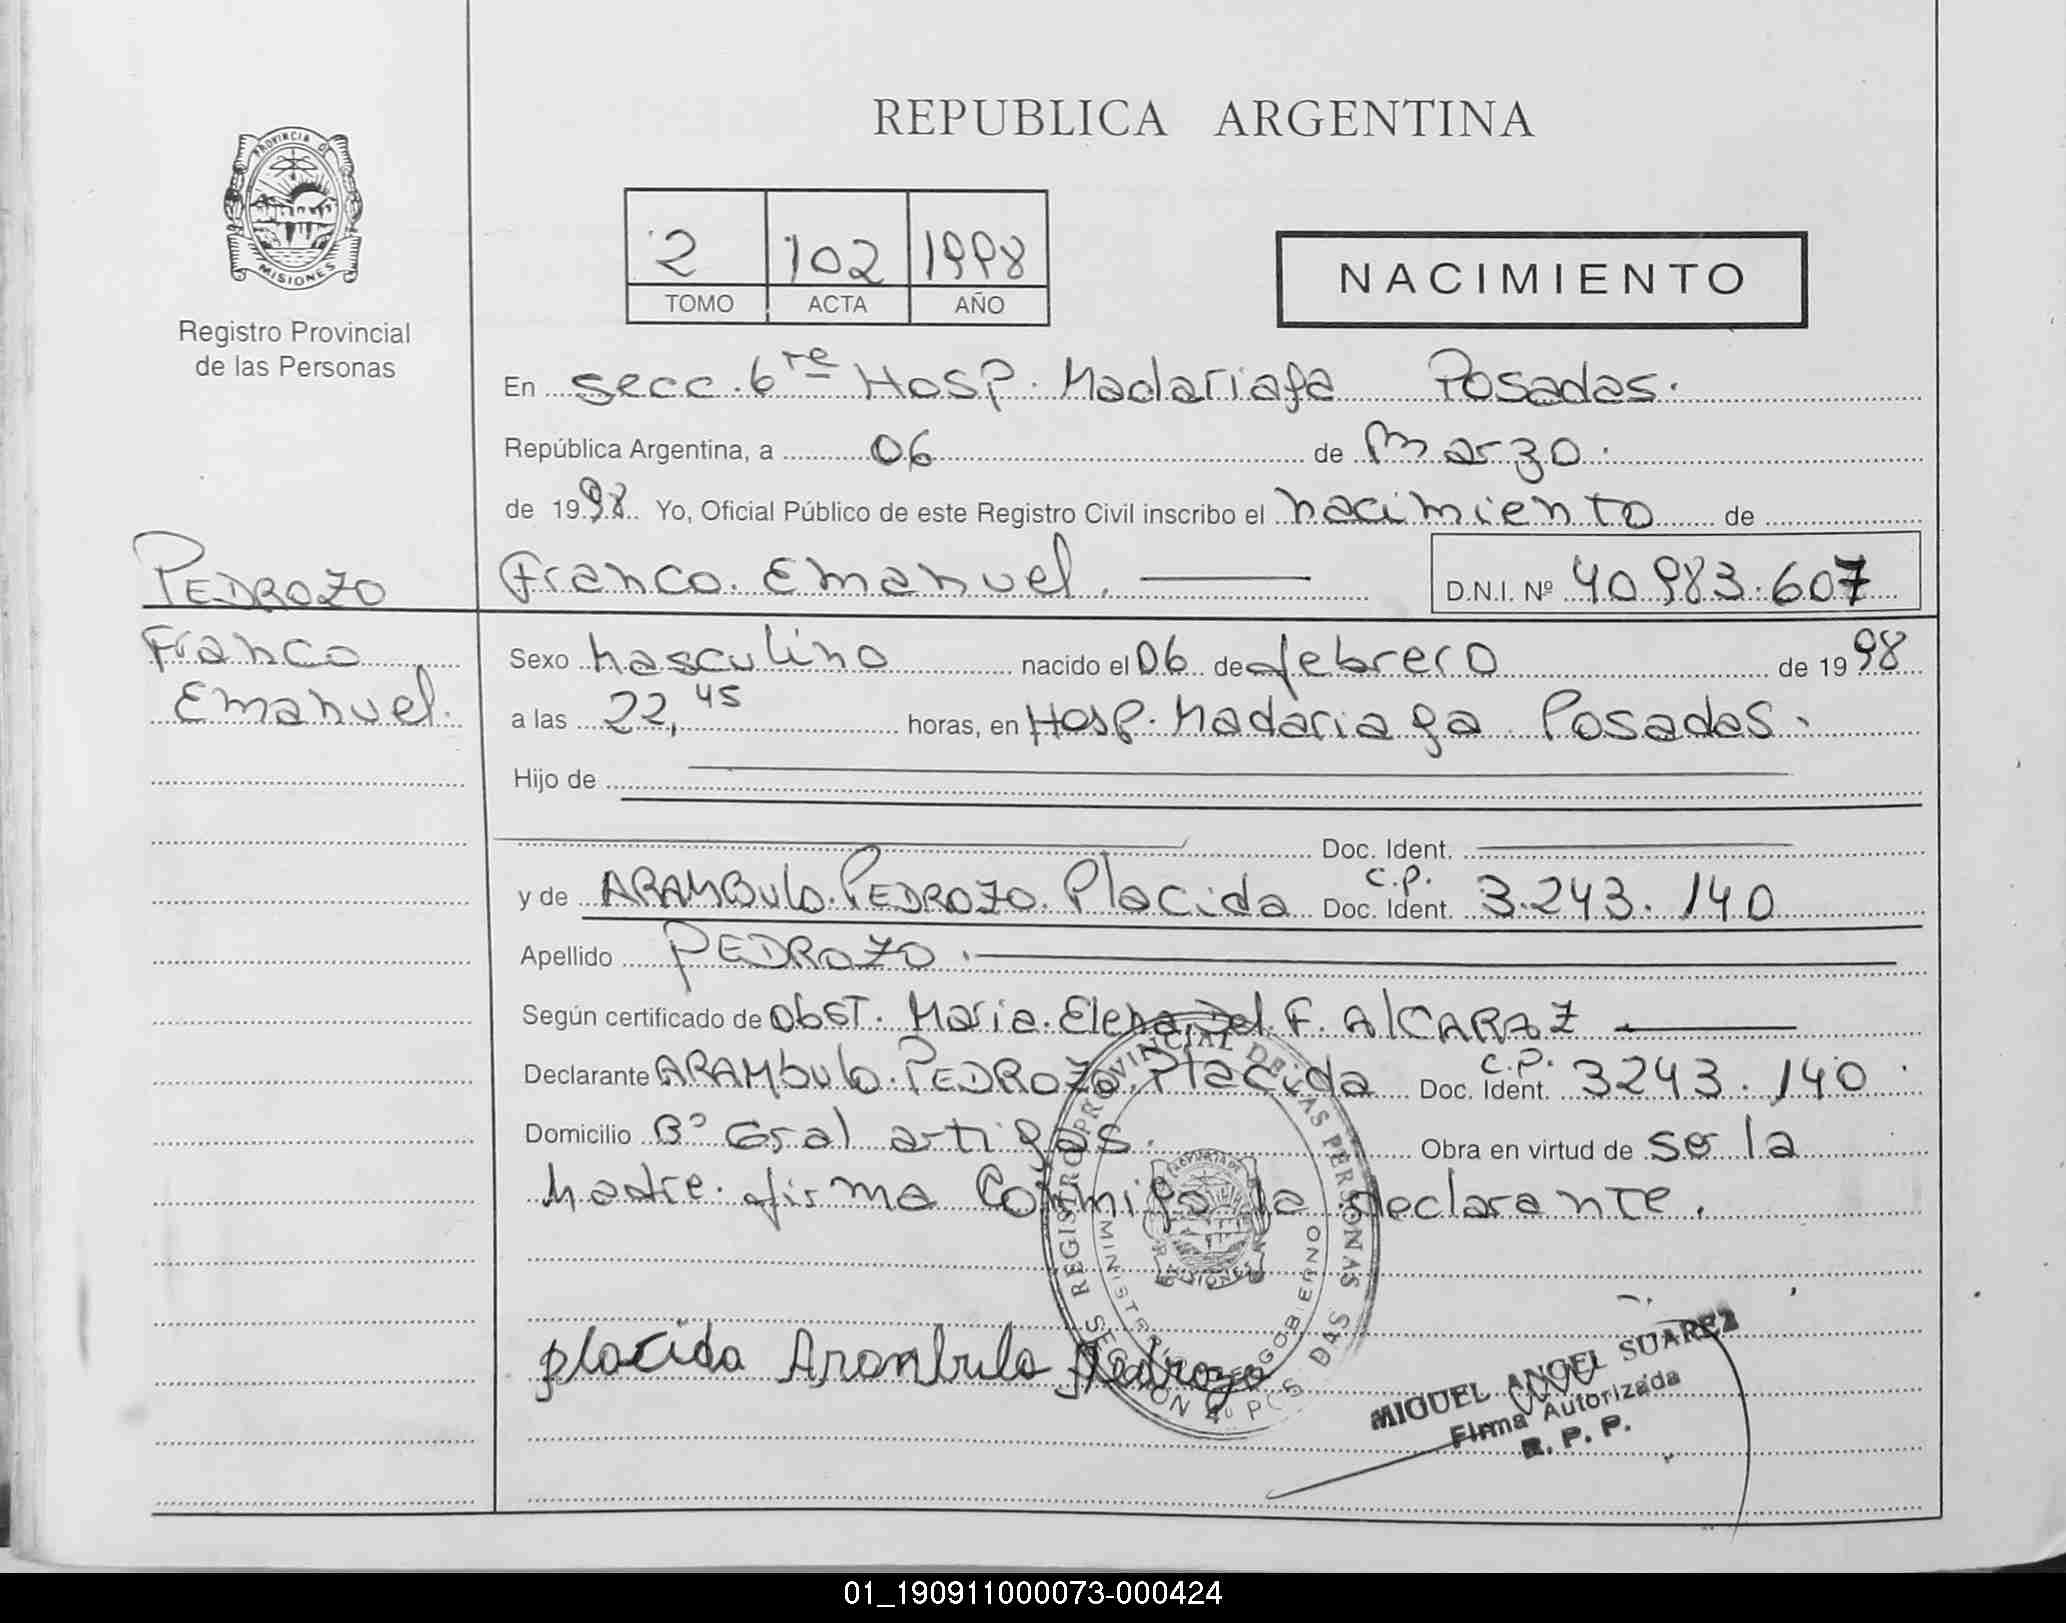 PROVINCIA DE
MISIONES
Registro Provincial
de las Personas
REPUBLICA ARGENTINA
2 102 1998
TOMO ACTA AÑO
NACIMIENTO
En secc. 6ta Hosp. Madariaga Posadas.
República Argentina, a 06 de Marzo.
de 1998. Yo, Oficial Público de este Registro Civil inscribo el nacimiento de
PEDROZO
Franco. Emanuel. D.N.I. Nº 40.983.607
Franco
Emanuel.
Sexo masculino nacido el 06 de febrero de 1998
a las 22,45 horas, en Hosp. Madariaga Posadas.
Hijo de
Doc. Ident.
y de ARAMBULO. PEDROZO. Placida C.P. Doc. Ident. 3.243.140
Apellido PEDROZO.
Según certificado de Obst. Maria. Elena. del. F. ALCARAZ
Declarante ARAMBULO. PEDROZO. Placida C.P. Doc. Ident. 3243.140
Domicilio Bº Gral artigas. Obra en virtud de ser la
madre. firma Conmigo la declarante.
placida Arambulo Pedrozo
REGISTRO PROVINCIAL DE LAS PERSONAS
MISIONES
MIGUEL ANGEL SUAREZ
Firma Autorizada
R. P. P.
01_190911000073-000424